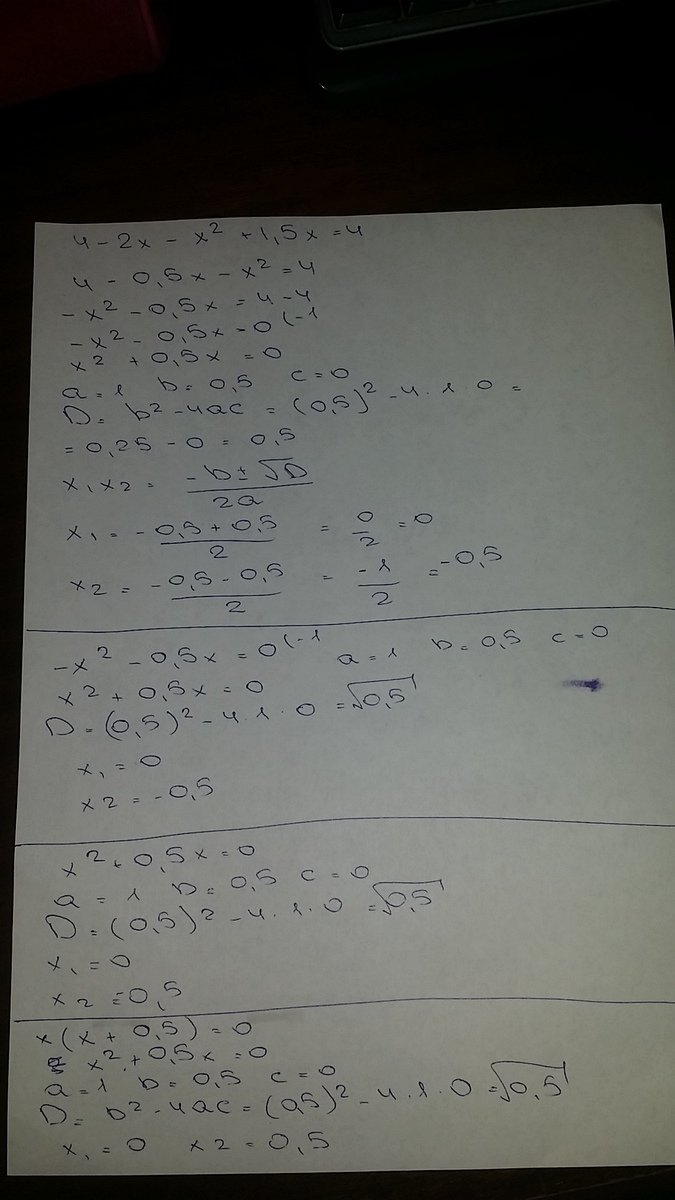 4 - 2x - x² + 1,5x = 4
4 - 0,5x - x² = 4
-x² - 0,5x = 4 - 4
-x² - 0,5x = 0 (-1
x² + 0,5x = 0
a = 1 b = 0,5 c = 0
D = b² - 4ac = (0,5)² - 4 · 1 · 0 =
= 0,25 - 0 = 0,5
x₁ x₂ = (-b ± √D)/2a
x₁ = (-0,5 + 0,5)/2 = 0/2 = 0
x₂ = (-0,5 - 0,5)/2 = -1/2 = -0,5
-x² - 0,5x = 0 (-1 a = 1 b = 0,5 c = 0
x² + 0,5x = 0
D = (0,5)² - 4 · 1 · 0 = √0,5
x₁ = 0
x₂ = -0,5
x² + 0,5x = 0
a = 1 b = 0,5 c = 0
D = (0,5)² - 4 · 1 · 0 = √0,5
x₁ = 0
x₂ = -0,5
x(x + 0,5) = 0
x² + 0,5x = 0
a = 1 b = 0,5 c = 0
D = b² - 4ac = (0,5)² - 4 · 1 · 0 = √0,5
x₁ = 0 x₂ = 0,5